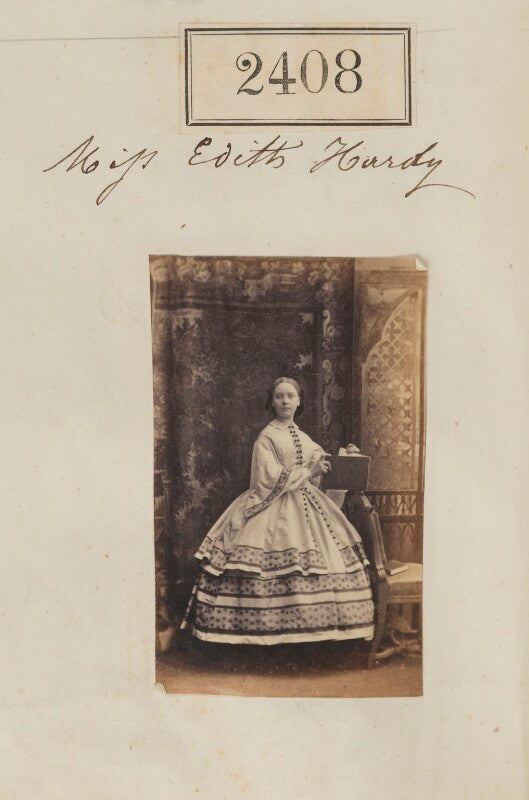 2408
Miss Edith Hardy